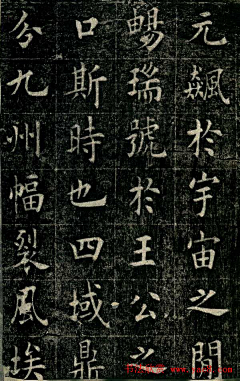 元飆於宇宙之間
暢瑞號於王公之
口斯時也四域鼎
分九州幅裂風埃